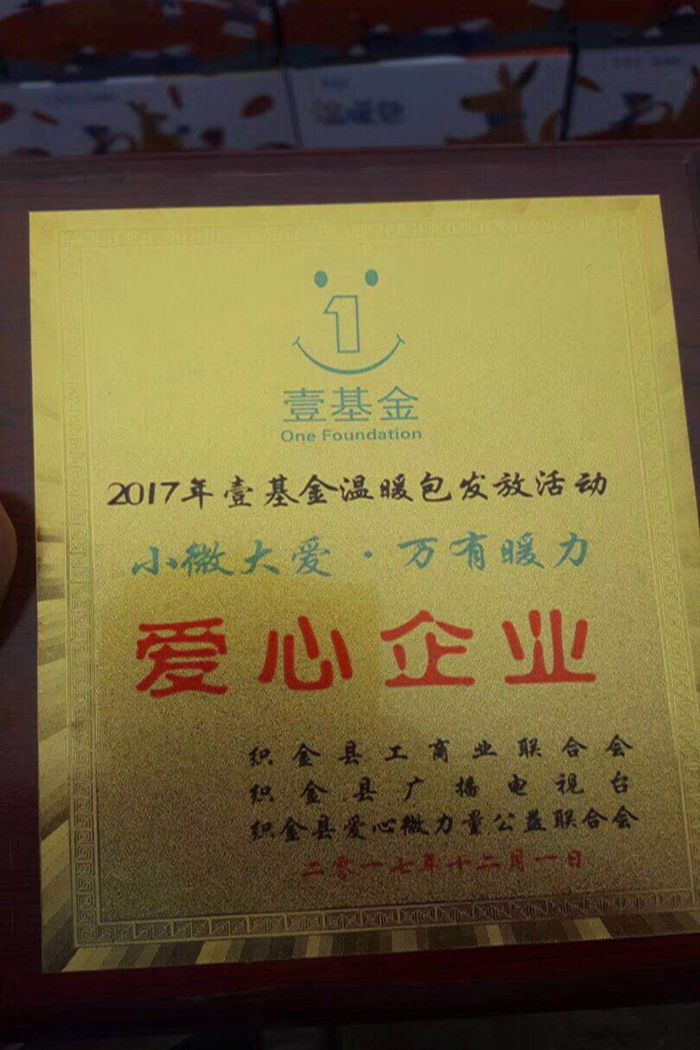 温暖包
1
壹基金
One Foundation
2017年壹基金温暖包发放活动
小微大爱·万有暖力
爱心企业
织金县工商业联合会
织金县广播电视台
织金县爱心微力量公益联合会
二零一七年十二月一日